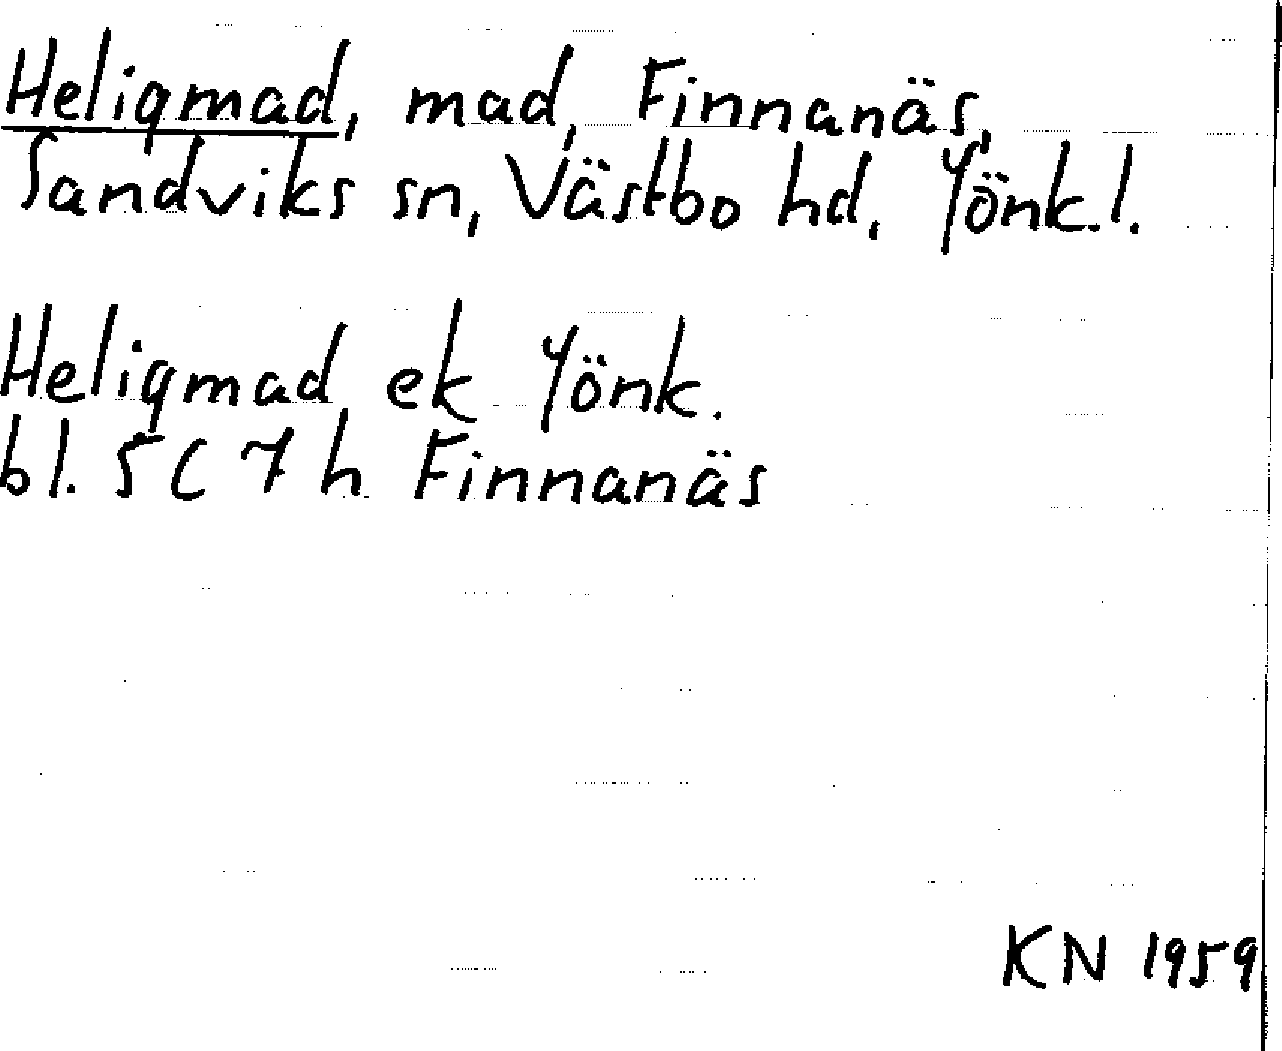 Heligmad, mad, Finnanäs,
Sandviks sn, Västbo hd, Jönk.l.
Heligmad ek Jönk.
bl. 5C 7h Finnanäs
KN 1959